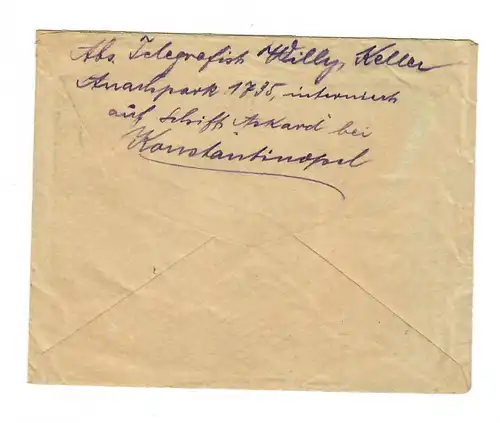 Abs. Telegrafist Willy, Keller
park 1735, interniert
auf Schiff Askard bei
Konstantinopel